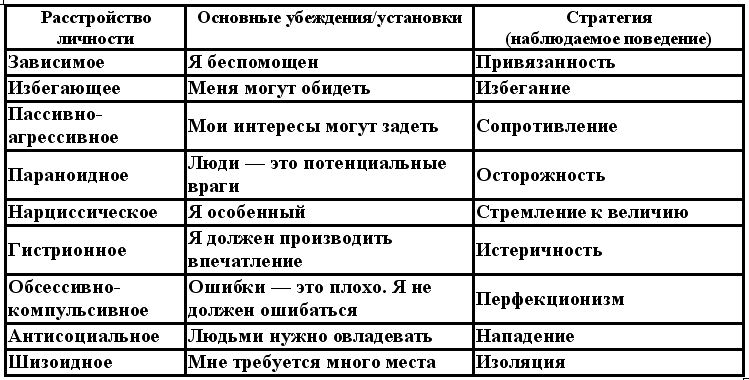 Расстройство личности | Основные убеждения/установки | Стратегия (наблюдаемое поведение)
Зависимое | Я беспомощен | Привязанность
Избегающее | Меня могут обидеть | Избегание
Пассивно-агрессивное | Мои интересы могут задеть | Сопротивление
Параноидное | Люди — это потенциальные враги | Осторожность
Нарциссическое | Я особенный | Стремление к величию
Гистрионное | Я должен производить впечатление | Истеричность
Обсессивно-компульсивное | Ошибки — это плохо. Я не должен ошибаться | Перфекционизм
Антисоциальное | Людьми нужно овладевать | Нападение
Шизоидное | Мне требуется много места | Изоляция